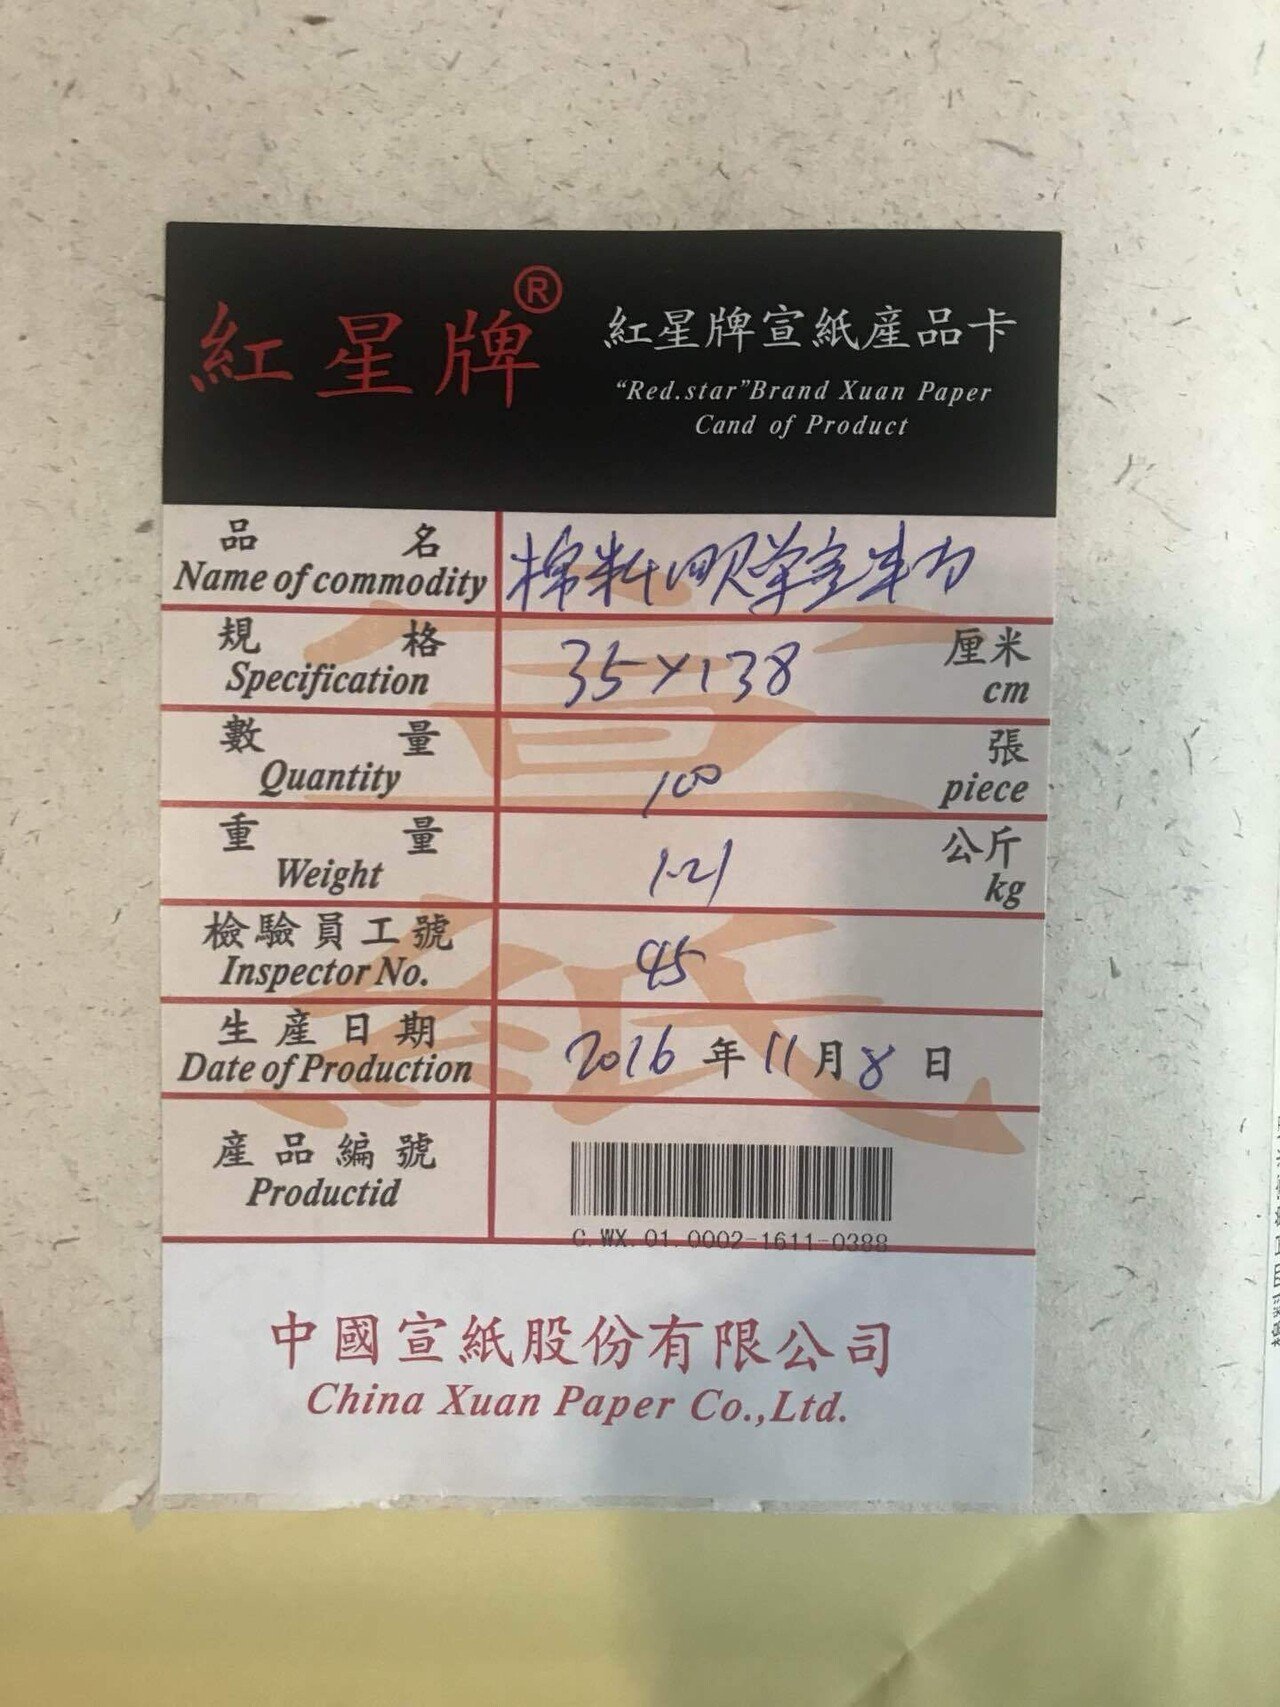 紅星牌®
紅星牌宣紙産品卡
“Red.star”Brand Xuan Paper
Cand of Product
品名
Name of commodity
棉料四尺单宣半刀
規格
Specification
35×138
厘米
cm
數量
Quantity
100
張
piece
重量
Weight
1.21
公斤
kg
檢驗員工號
Inspector No.
45
生産日期
Date of Production
2016年11月8日
産品編號
Productid
C.WX.01.0002-1611-0388
中國宣紙股份有限公司
China Xuan Paper Co.,Ltd.